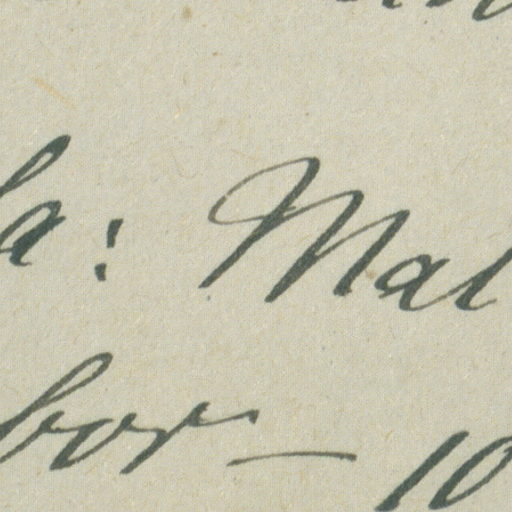 la: Mal
bor — 10